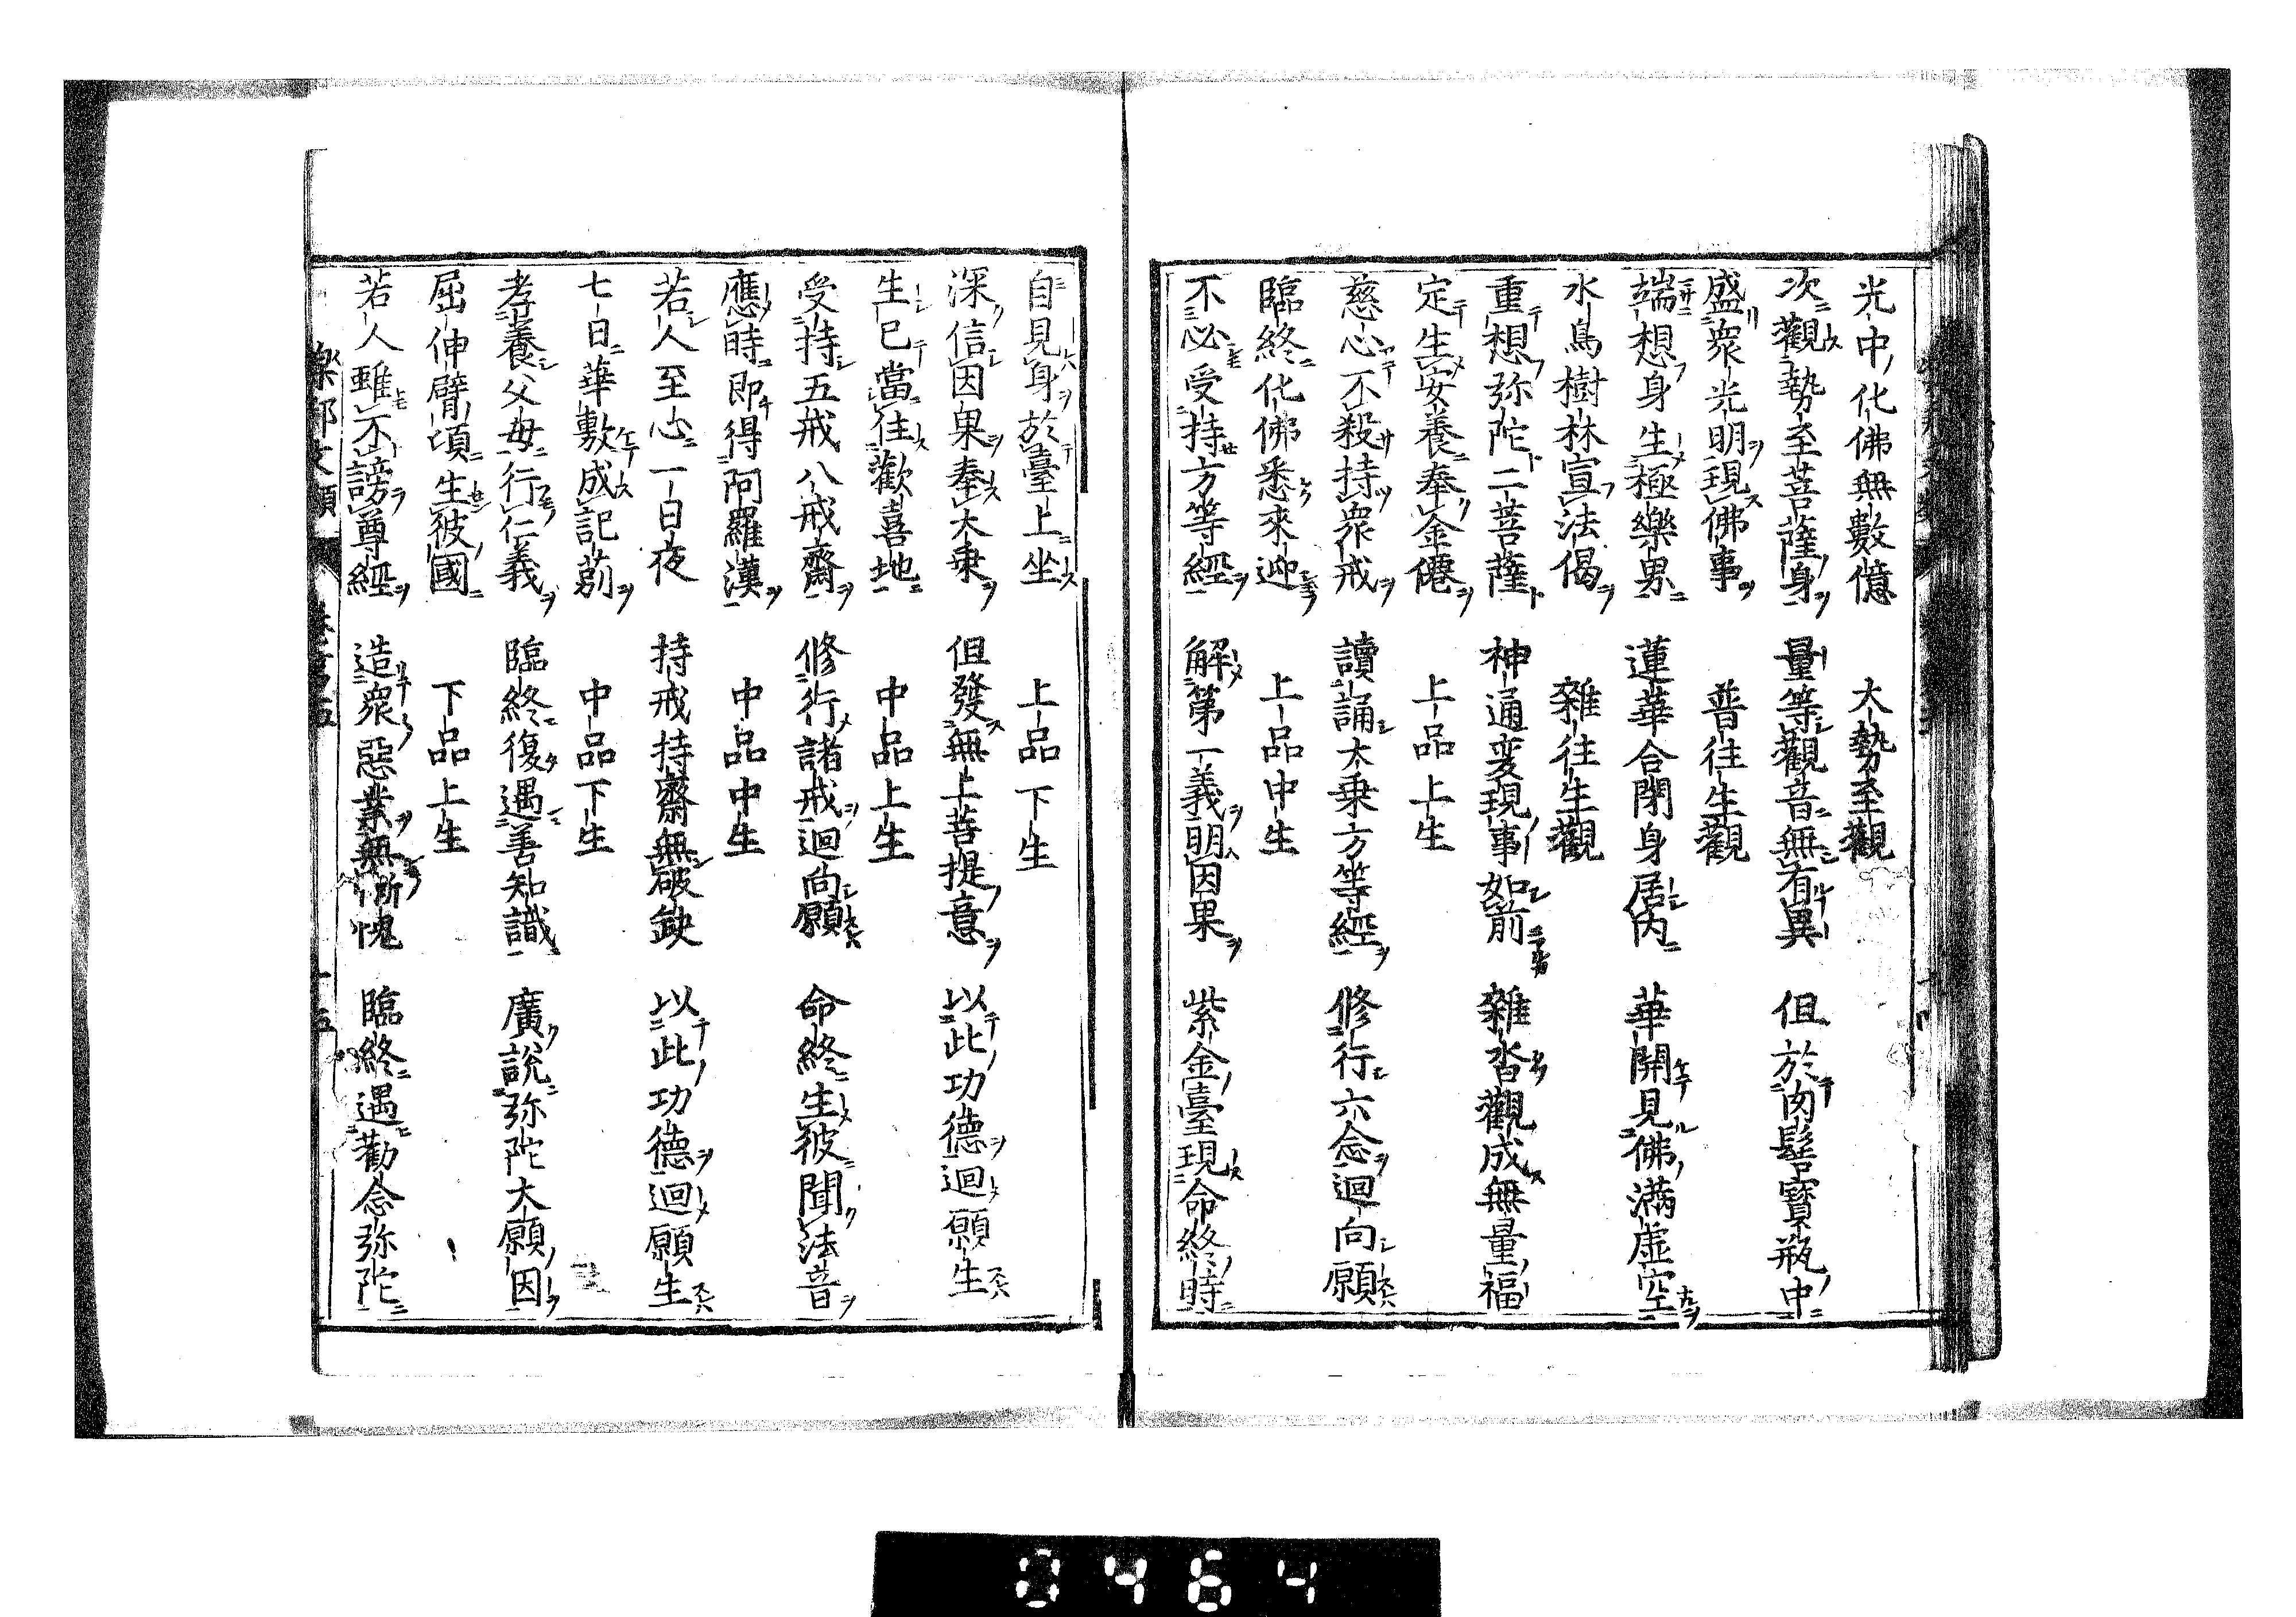 光中化佛無數億　大勢至觀
次觀勢至菩薩身　量等觀音無有異　但於肉髻寶瓶中
盛衆光明現佛事　普往生觀
端想身生極樂界　蓮華合閉身居内　華開見佛滿虛空
水鳥樹林宣法偈　雜往生觀
重想弥陀二菩薩　神通変現事如前　雜沓觀成無量福
定生安養奉金僊　上品上生
慈心不殺持衆戒　讀誦大乗方等經　修行六念迴向願
臨終化佛悉來迎　上品中生
不必受持方等經　解第一義明因果　紫金臺現命終時
自見身於臺上坐　上品下生
深信因果奉大乗　但發無上菩提意　以此功德迴願生
生已當往歡喜地　中品上生
受持五戒八戒齋　修行諸戒迴向願　命終生彼聞法音
應時即得阿羅漢　中品中生
若人至心一日夜　持戒持齋無破缺　以此功德迴願生
七日華敷成記莂　中品下生
孝養父母行仁義　臨終復遇善知識　廣說弥陀大願因
屈伸臂頃生彼國　下品上生
若人雖不謗尊經　造衆惡業無慚愧　臨終遇勸念弥陀
樂邦文類
0464